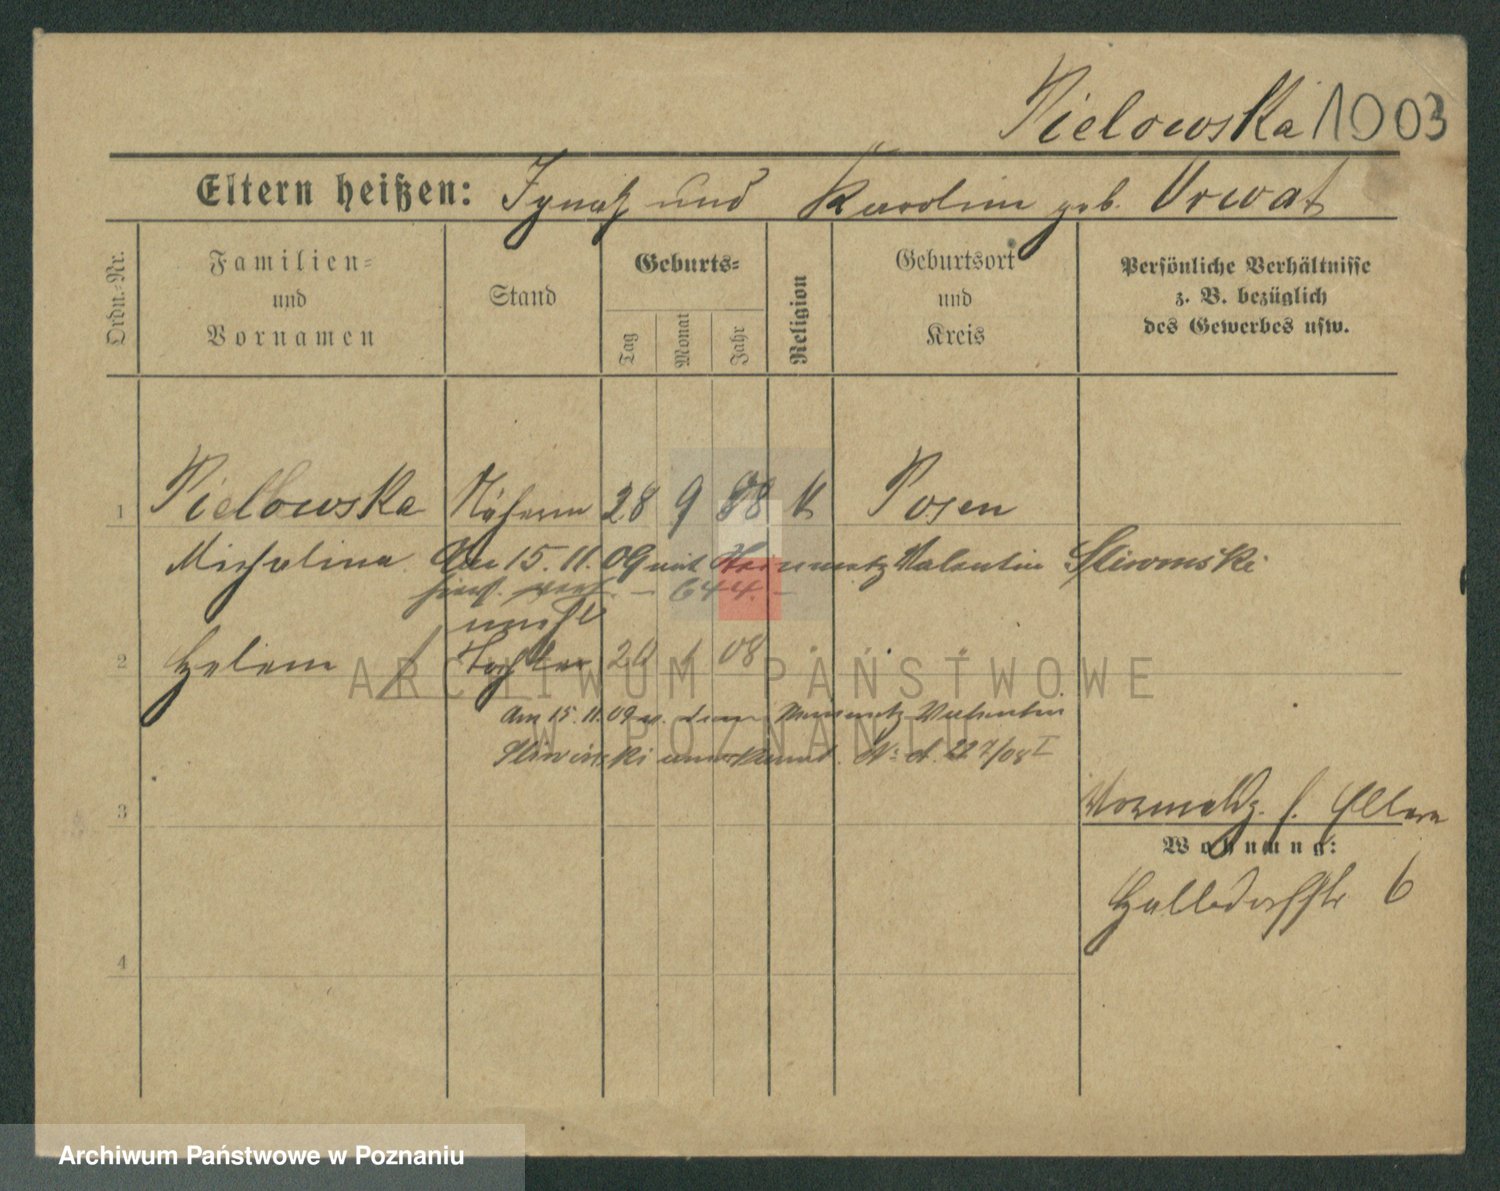 Pielowska 1003
Eltern heißen: Ignatz und Karoline geb. Urwat
Ordn.-Nr.
Familien-
und
Vornamen
Stand
Geburts-
Tag
Monat
Jahr
Religion
Geburtsort
und
Kreis
Persönliche Verhältnisse
z. B. bezüglich
des Gewerbes usw.
1 Pielowska Näherin 28 9 88 k Posen
Michalina Am 15.11.09 mit Valentin Sliwinski
644.
unehl
2 Helene Tochter 20 1 08
Am 15.11.09 v. dem Valentin
Sliwinski anerkannt. 227/08 I
3
Eltern
Wohnung:
6
4
ARCHIWUM PAŃSTWOWE
W POZNANIU
Archiwum Państwowe w Poznaniu